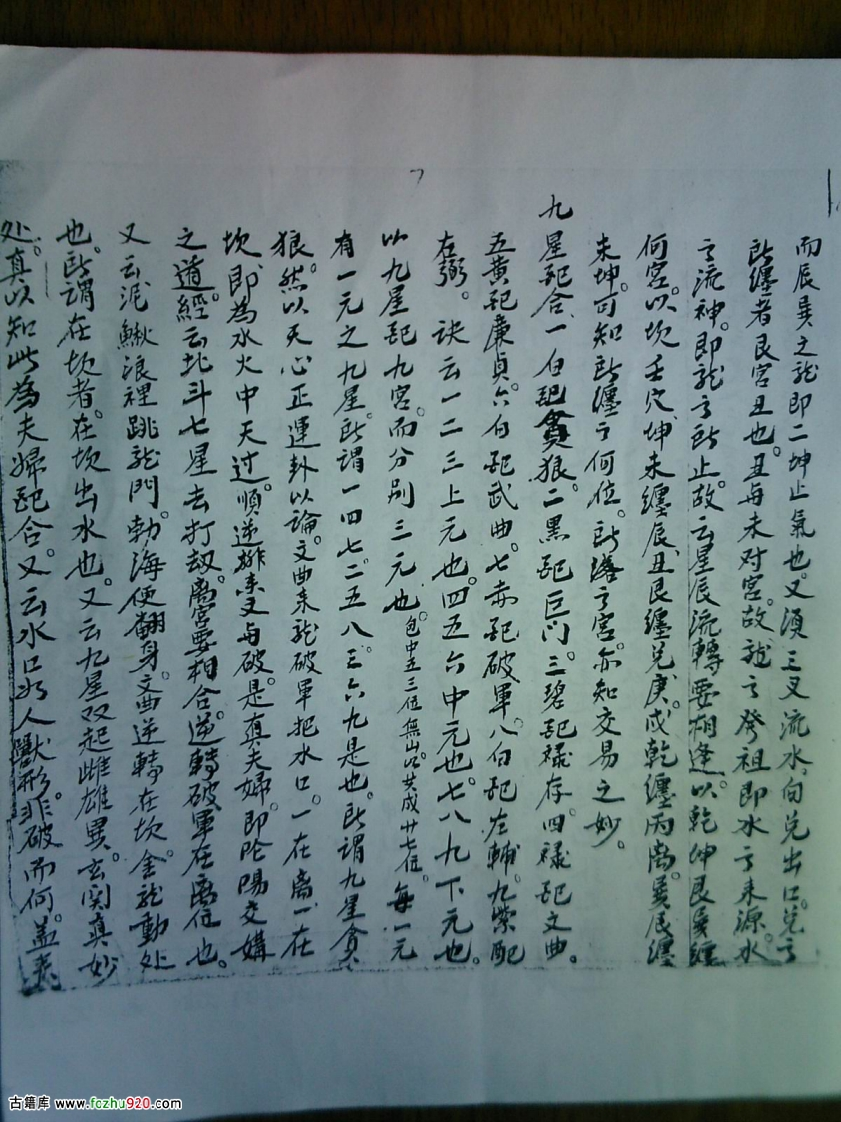 而辰巽之龍即二坤止氣也。又須三叉流水，向兑出口。兑之
所纏者艮宮丑也。丑与未对宮。故龍之發祖即水之来源。水
之流神。即龍之所止。故云星辰流轉要相逢。以乾坤艮巽纏
何宮。以坎壬穴，坤未纏辰，丑艮纏兑庚。戌乾纏丙离。巽辰纏
未坤。可知所纏之何位。所落之宮。亦知交易之妙。
九星配合，一白配貪狼。二黑配巨门。三碧配禄存。四禄配文曲。
五黄配廉貞。六白配武曲。七赤配破軍。八白配左輔。九紫配
右弼。訣云一二三上元也。四五六中元也。七八九下元也。
以九星配九宮。而分别三元也。包中五三位無山。只共成廿七位。每一元
有一元之九星。所谓一四七。二五八。三六九是也。所謂九星貪
狼。然以天心正運卦以論。文曲来龍破軍把水口。一在离一在
坎，即為水火中天过。順逆排来文与破。是真夫婦。即陰陽交媾
之道。經云北斗七星去打刼。离宮要相合。逆轉破軍在离位也。
又云泥鰍浪裡跳龍門。勃海便翻身。文曲逆轉在坎。金龍動处
也。所謂在坎者。在坎出水也。又云九星双起雌雄異。玄関真妙
处。真以知此為夫婦配合。又云水口水人獸形。非破而何。盖
古籍库 www.fczhu920.com